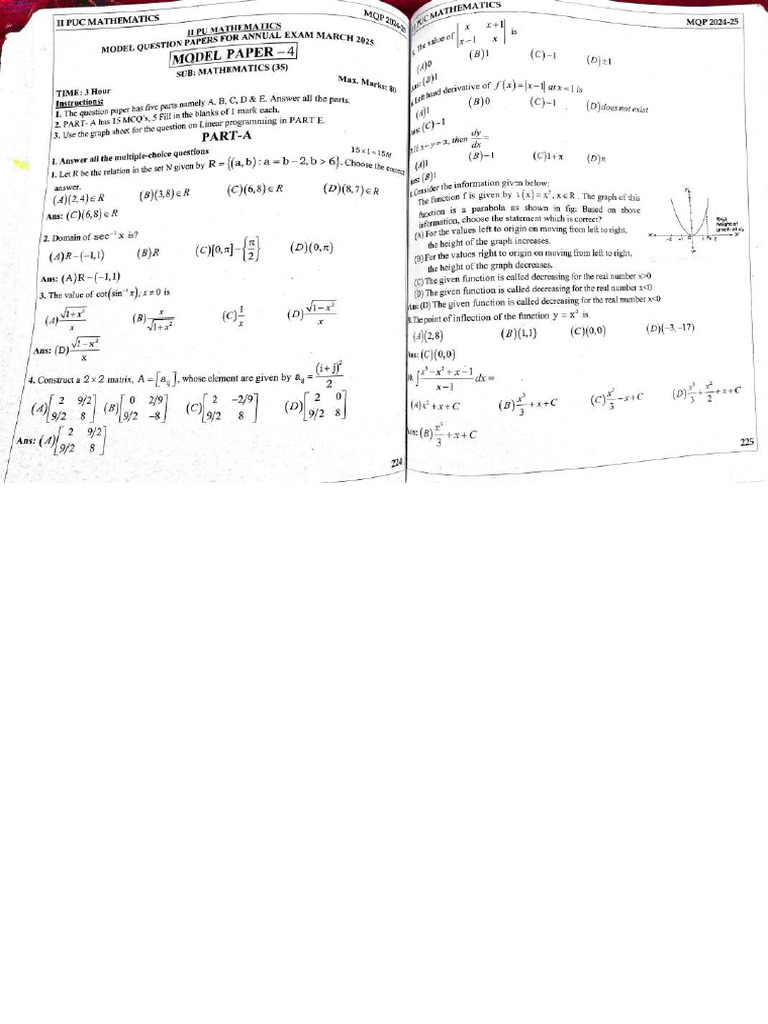 II PUC MATHEMATICS
MQP 2024-25
II PU MATHEMATICS
MODEL QUESTION PAPERS FOR ANNUAL EXAM MARCH 2025
MODEL PAPER – 4
SUB: MATHEMATICS (35)
TIME: 3 Hour
Max. Marks: 80
Instructions:
1. The question paper has five parts namely A, B, C, D & E. Answer all the parts.
2. PART- A has 15 MCQ's, 5 Fill in the blanks of 1 mark each.
3. Use the graph sheet for the question on Linear programming in PART E.
PART-A
I. Answer all the multiple-choice questions
15×1=15M
1. Let R be the relation in the set N given by R = {(a, b) : a = b – 2, b > 6}. Choose the correct
answer.
(A)(2,4)∈R (B)(3,8)∈R (C)(6,8)∈R (D)(8,7)∈R
Ans: (C)(6,8)∈R
2. Domain of sec⁻¹ x is?
(A)R–(–1,1) (B)R (C)[0,π]–{π/2} (D)(0,π)
Ans: (A)R–(–1,1)
3. The value of cot(sin⁻¹ x), x ≠ 0 is
(A) √(1+x²)/x (B) x/√(1+x²) (C) 1/x (D) √(1–x²)/x
Ans: (D) √(1–x²)/x
4. Construct a 2×2 matrix, A = [aᵢⱼ], whose element are given by aᵢⱼ = (i+j)²/2
(A)[2 9/2; 9/2 8] (B)[0 2/9; 9/2 –8] (C)[2 –2/9; 9/2 8] (D)[2 0; 9/2 8]
Ans: (A)[2 9/2; 9/2 8]
224
PUC MATHEMATICS
MQP 2024-25
The value of |x x+1; x–1 x| is
(A)0 (B)1 (C)–1 (D)±1
Ans: (B)1
Left hand derivative of f(x)=|x–1| at x=1 is
(A)1 (B)0 (C)–1 (D)does not exist
Ans: (C)–1
If x–y=π, then dy/dx =
(A)1 (B)–1 (C)1+π (D)π
Ans: (B)1
Consider the information given below:
The function f is given by f(x)=x², x∈R. The graph of this
function is a parabola as shown in fig: Based on above
information, choose the statement which is correct?
(A) For the values left to origin on moving from left to right,
the height of the graph increases.
(B) For the values right to origin on moving from left to right,
the height of the graph decreases.
(C) The given function is called decreasing for the real number x>0
(D) The given function is called decreasing for the real number x<0
Ans: (D) The given function is called decreasing for the real number x<0
height of
9. The point of inflection of the function y = x³ is
(A)(2,8) (B)(1,1) (C)(0,0) (D)(–3,–17)
Ans: (C)(0,0)
10. ∫ (x³–x²+x–1)/(x–1) dx =
(A)x²+x+C (B) x³/3+x+C (C) x²/3–x+C (D) x³/3+x²/2+x+C
Ans: (B) x³/3+x+C
225